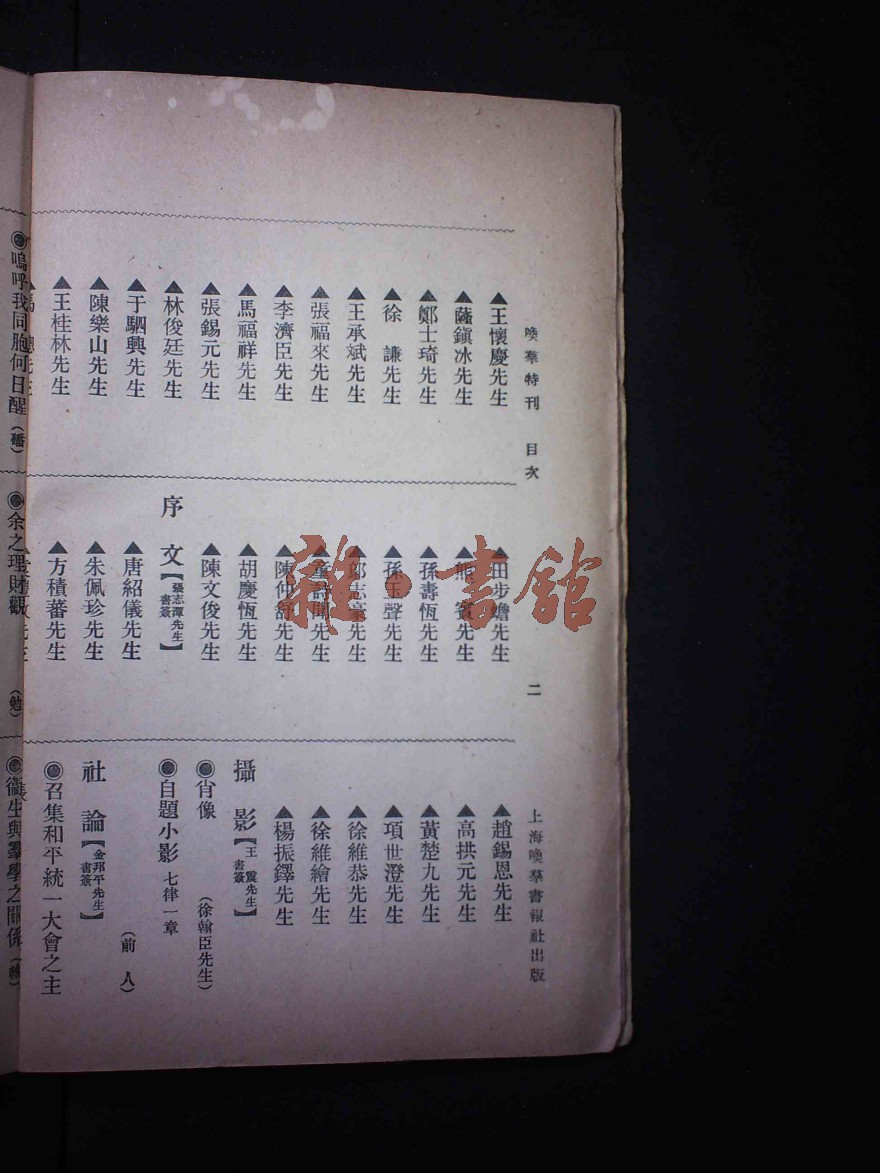 喚羣特刊 目次 二 上海喚羣書報社出版
▲王懷慶先生
▲薩鎭冰先生
▲鄭士琦先生
▲徐 謙先生
▲王承斌先生
▲張福來先生
▲李濟臣先生
▲馬福祥先生
▲張錫元先生
▲林俊廷先生
▲于駟興先生
▲陳樂山先生
▲王桂林先生
▲田步蟾先生
▲熊 賓先生
▲孫壽恆先生
▲孫玉聲先生
▲邱志豪先生
▲童詩聞先生
▲陳仲舒先生
▲胡慶恆先生
▲陳文俊先生
序 文【張志潭先生書簽】
▲唐紹儀先生
▲朱佩珍先生
▲方積蕃先生
▲趙錫恩先生
▲高拱元先生
▲黃楚九先生
▲項世澄先生
▲徐維恭先生
▲徐維繪先生
▲楊振鐸先生
攝 影【王 震先生書簽】
◉肖像 (徐翰臣先生)
◉自題小影 七律一章
(前 人)
社 論【金邦平先生書簽】
◉召集和平統一大會之主
◉嗚呼我同胞何日醒
◉余之理財觀 (勉)
◉衞生與羣學之關係
雜·書館